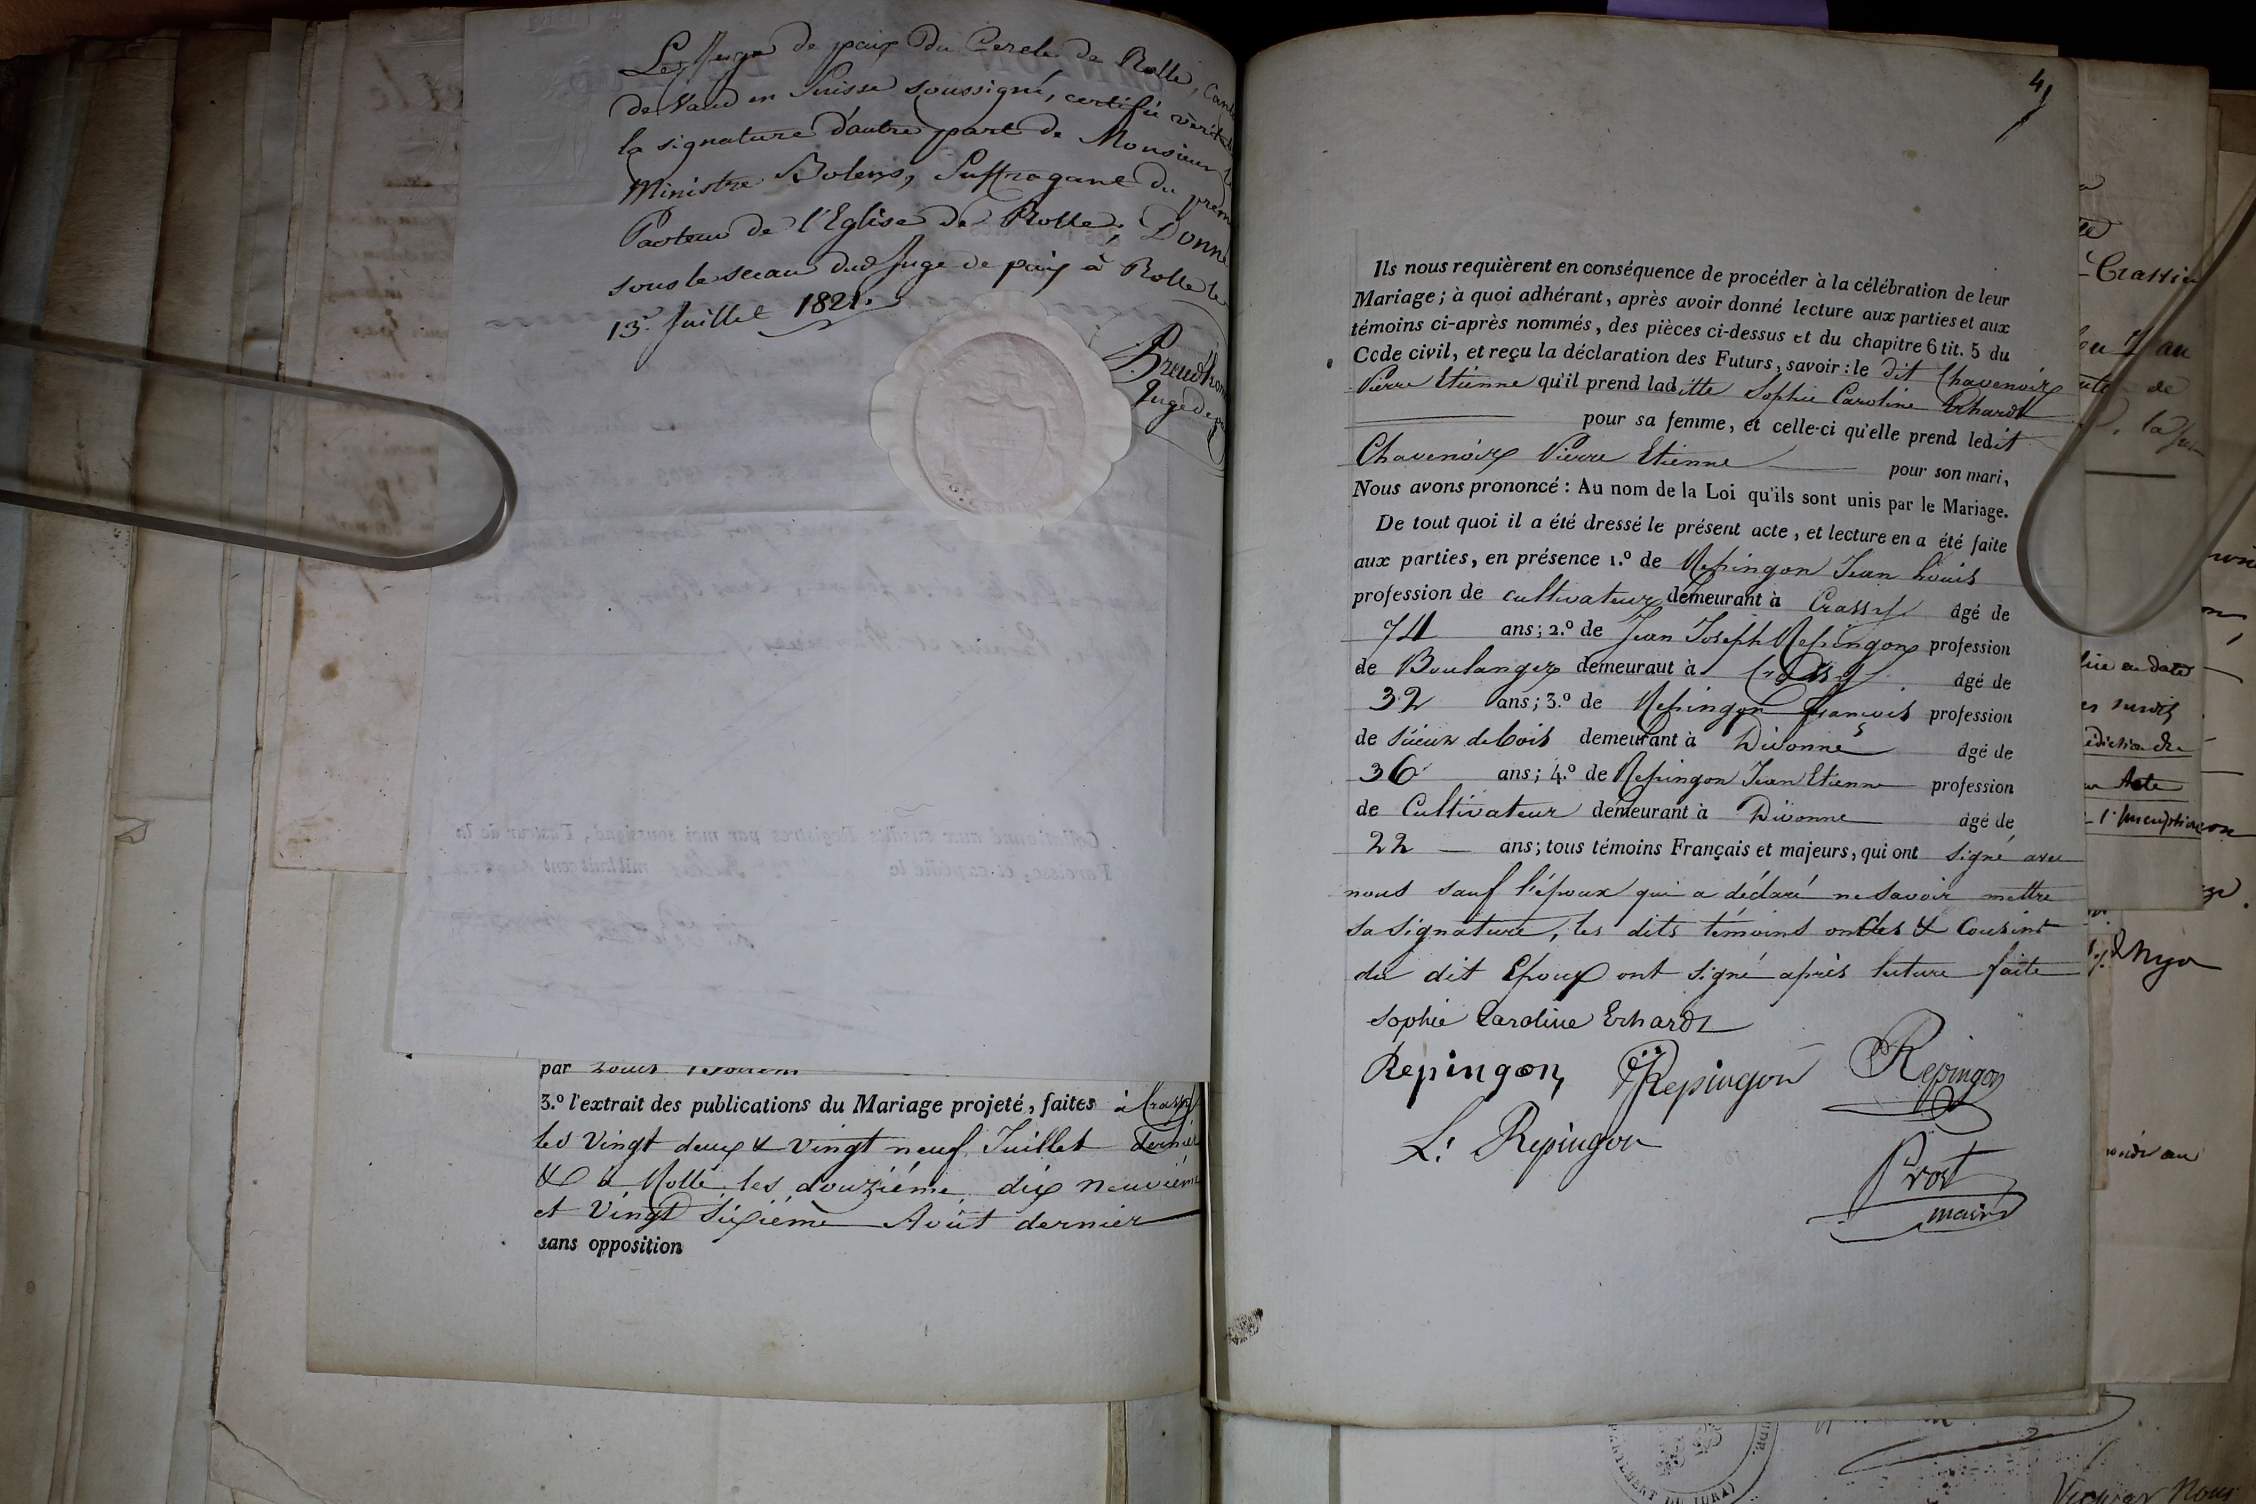 Le Juge de paix du Cercle de Rolle,
de Vaud en Suisse soussigné, certifie
la signature d'autre part de Monsieur
Ministre Bolens, Suffragant du
Pasteur de l'Eglise de Rolle; Donné
sous le sceau dud Juge de paix à Rolle le
13. Juillet 1821.
Juge de
par Louis
3.º l'extrait des publications du Mariage projeté, faites à Crassy
les Vingt deux & Vingt neuf Juillet dernier
& à Rolle les douzième dix neuvième
et Vingt Sixième Août dernier
sans opposition
4
Ils nous requièrent en conséquence de procéder à la célébration de leur
Mariage; à quoi adhérant, après avoir donné lecture aux parties et aux
témoins ci-après nommés, des pièces ci-dessus et du chapitre 6 tit. 5 du
Code civil, et reçu la déclaration des Futurs, savoir: le dit Chavenoix
Pierre Etienne qu'il prend laditte Sophie Caroline Erhardt
pour sa femme, et celle-ci qu'elle prend ledit
Chavenoix Pierre Etienne pour son mari,
Nous avons prononcé: Au nom de la Loi qu'ils sont unis par le Mariage.
De tout quoi il a été dressé le présent acte, et lecture en a été faite
aux parties, en présence 1.º de Repingon Jean Louis
profession de cultivateur demeurant à Crassy âgé de
74 ans; 2.º de Jean Joseph Repingon profession
de Boulanger demeurant à Crassy âgé de
32 ans; 3.º de Repingon François profession
de sieur de bois demeurant à Divonne âgé de
36 ans; 4.º de Repingon Jean Etienne profession
de Cultivateur demeurant à Divonne âgé de
22 ans; tous témoins Français et majeurs, qui ont signé avec
nous sauf l'époux qui a déclaré ne savoir mettre
sa signature, les dits témoins oncles & Cousins
du dit Epoux ont signé après lecture faite
Sophie Caroline Erhardt
Repingon, Repingon Repingon
L: Repingon
Prost
maire